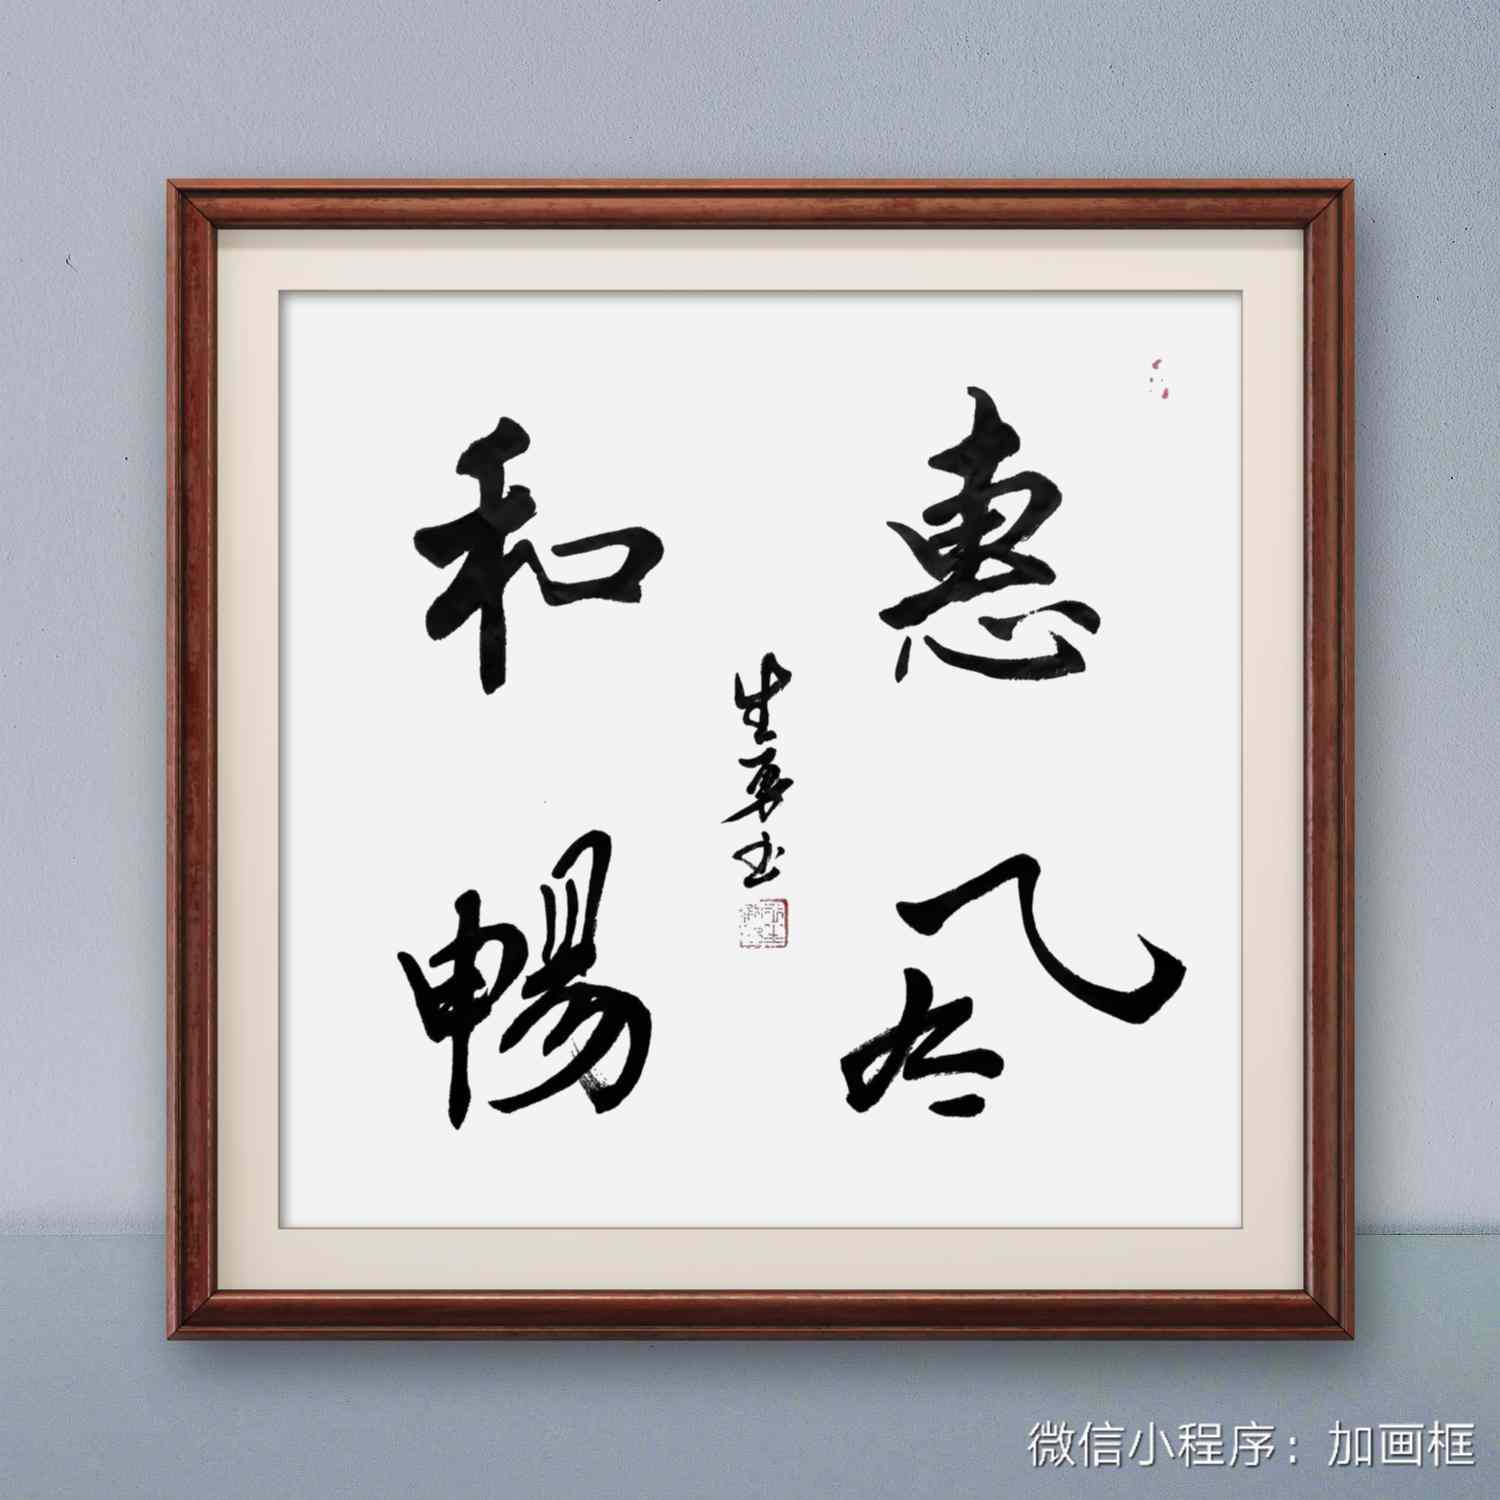 惠風
和暢
生勇书
微信小程序：加画框